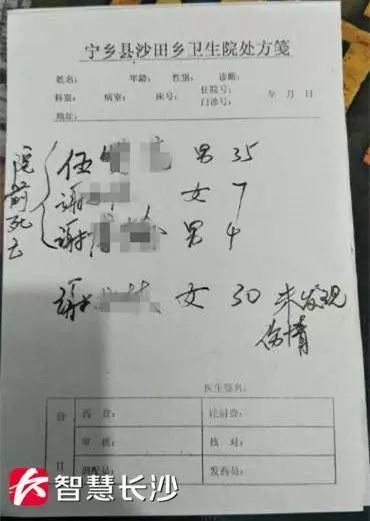 宁乡县沙田乡卫生院处方笺
姓名: 年龄: 性别: 诊断:
科别: 病室: 床号: 住院号: 门诊号: 年 月 日
地址:
院前死亡
伍 男 35
谢 女 7
谢 男 4
谢 女 30 未发现
伤情
医生签名:
药费: 注射费:
审核: 核对:
调配员: 发药员:
智慧长沙